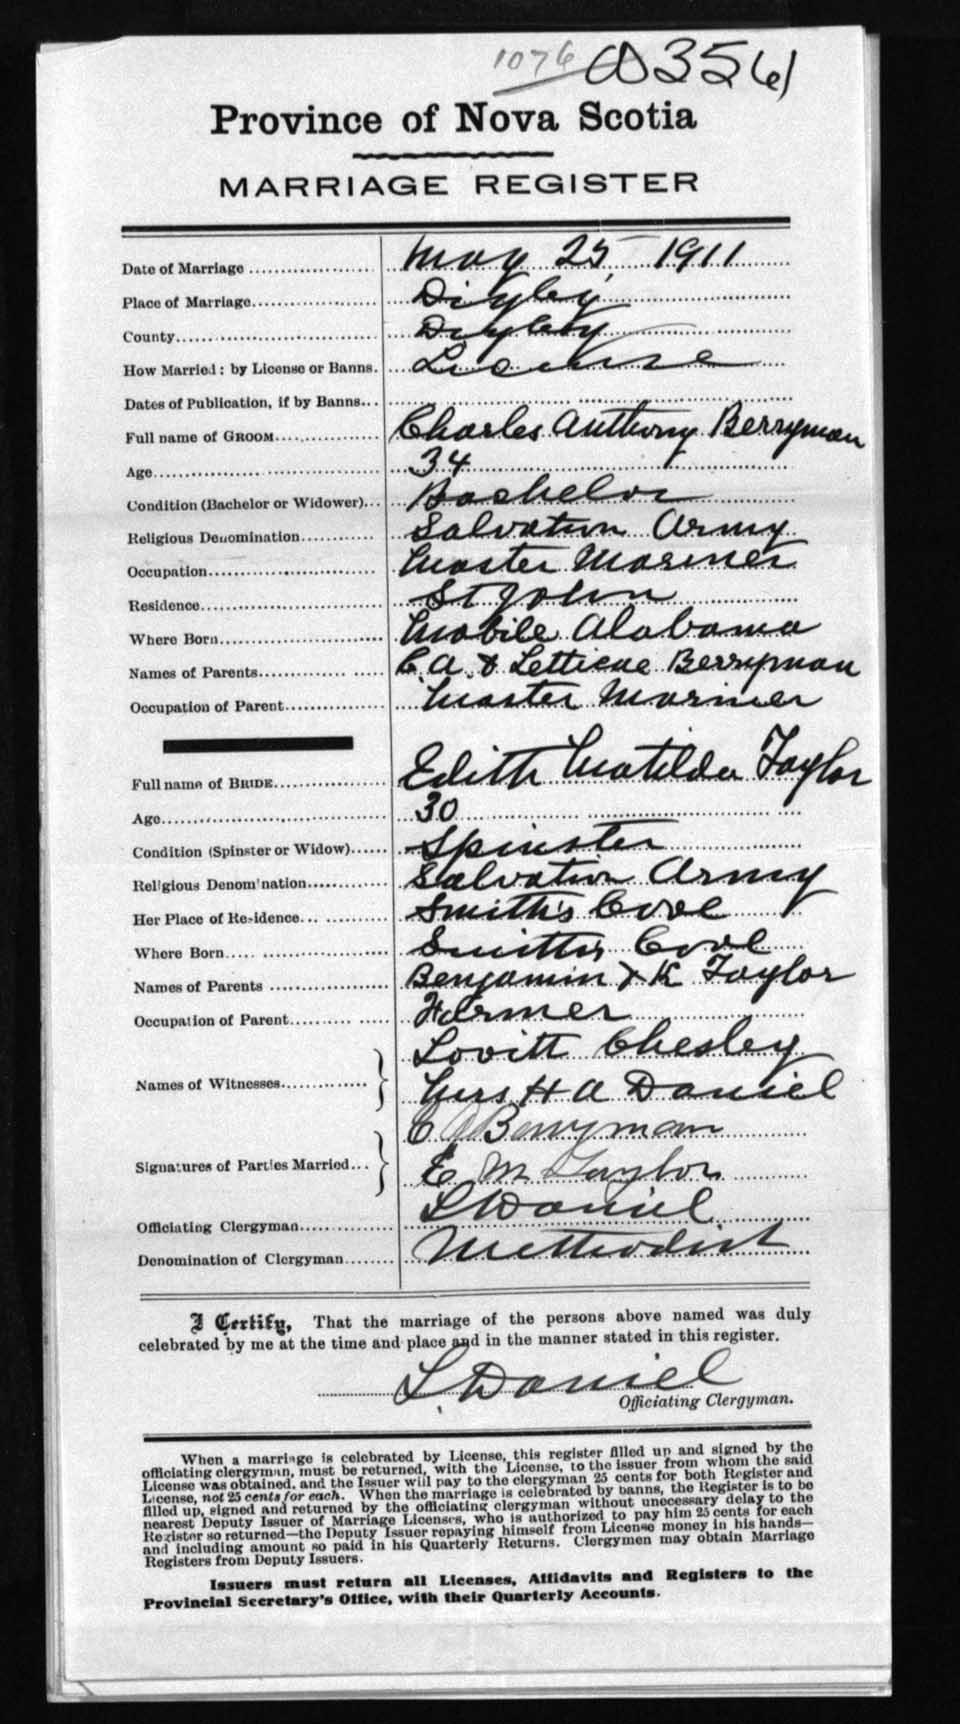 1076
Province of Nova Scotia
MARRIAGE REGISTER
Date of Marriage May 25 1911
Place of Marriage Digby
County Digby
How Married: by License or Banns. License
Dates of Publication, if by Banns
Full name of GROOM Charles Anthony Berryman
Age 34
Condition (Bachelor or Widower) Bachelor
Religious Denomination Salvation Army
Occupation Master Mariner
Residence St John
Where Born Mobile Alabama
Names of Parents C. A. & Berryman
Occupation of Parent Master Mariner
Full name of BRIDE Edith Matilda Taylor
Age 30
Condition (Spinster or Widow) Spinster
Religious Denomination Salvation Army
Her Place of Residence Smith's Cove
Where Born Smiths Cove
Names of Parents Benjamin & K Taylor
Occupation of Parent Farmer
Names of Witnesses Lovitt Chesley
Mrs H A Daniel
Signatures of Parties Married C A Berryman
E M Taylor
Officiating Clergyman L Daniel
Denomination of Clergyman Methodist
I Certify, That the marriage of the persons above named was duly
celebrated by me at the time and place and in the manner stated in this register.
L. Daniel
Officiating Clergyman.
When a marriage is celebrated by License, this register filled up and signed by the
officiating clergyman, must be returned, with the License, to the issuer from whom the said
License was obtained, and the Issuer will pay to the clergyman 25 cents for both Register and
License, not 25 cents for each. When the marriage is celebrated by banns, the Register is to be
filled up, signed and returned by the officiating clergyman without unnecessary delay to the
nearest Deputy Issuer of Marriage Licenses, who is authorized to pay him 25 cents for each
Register so returned—the Deputy Issuer repaying himself from License money in his hands—
and including amount so paid in his Quarterly Returns. Clergymen may obtain Marriage
Registers from Deputy Issuers.
Issuers must return all Licenses, Affidavits and Registers to the
Provincial Secretary's Office, with their Quarterly Accounts.